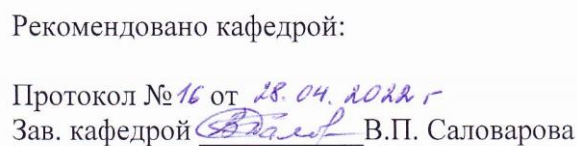 Рекомендовано кафедрой:
Протокол №16 от 28.04.2022 г
Зав. кафедрой В.П. Саловарова